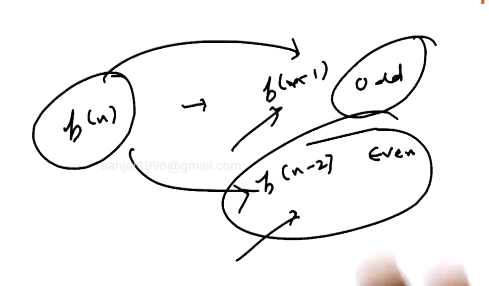 f(n) → f(n-1) odd
f(n-2) Even
sanjay1998@gmail.com